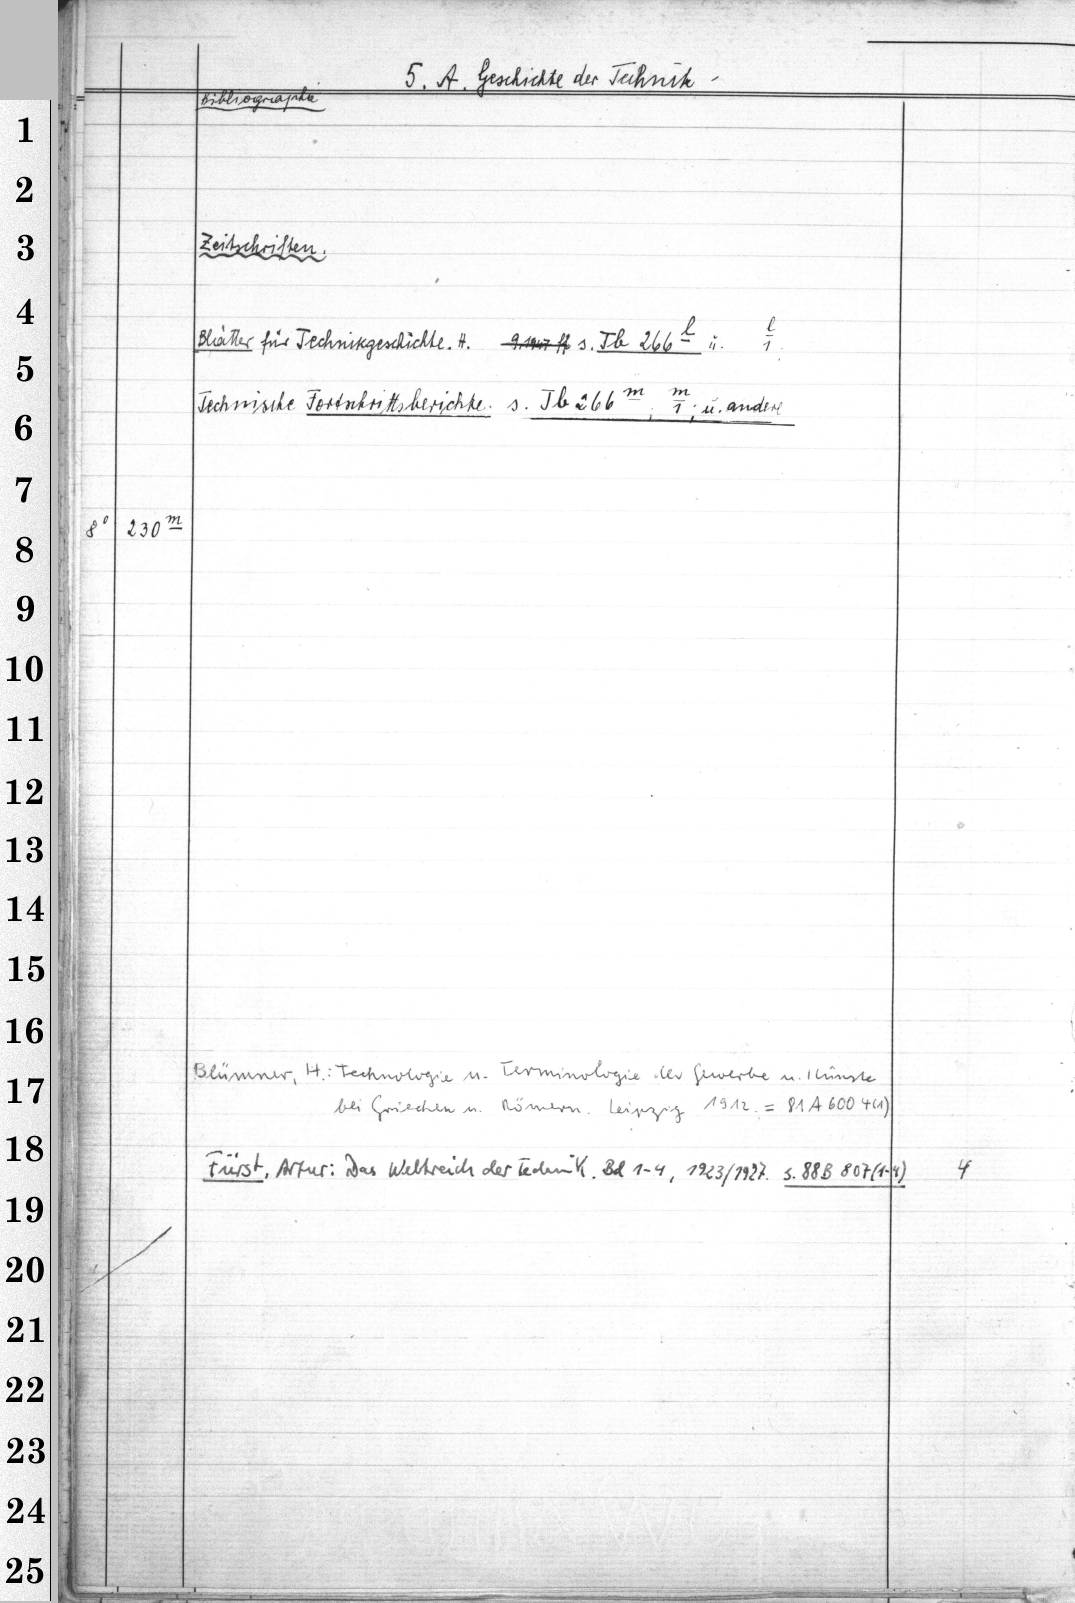 5. A. Geschichte der Technik -
Bibliographie
1
2
3
Zeitschriften.
4
Blätter für Technikgeschichte. H. 9.1947 ff s. Tb 266 l u. l/1.
5
Technische Fortschrittsberichte. s. Tb 266 m, m/1; u. andere
6
7
8° 230 m
8
9
10
11
12
13
14
15
16
Blümner, H.: Technologie u. Terminologie der Gewerbe u. Künste
17
bei Griechen u. Römern. Leipzig 1912. = 81 A 600 4(1)
18
Fürst, Artur: Das Weltreich der Technik. Bd 1-4, 1923/1927. s. 88B 807(1-4) 4
19
20
21
22
23
24
25